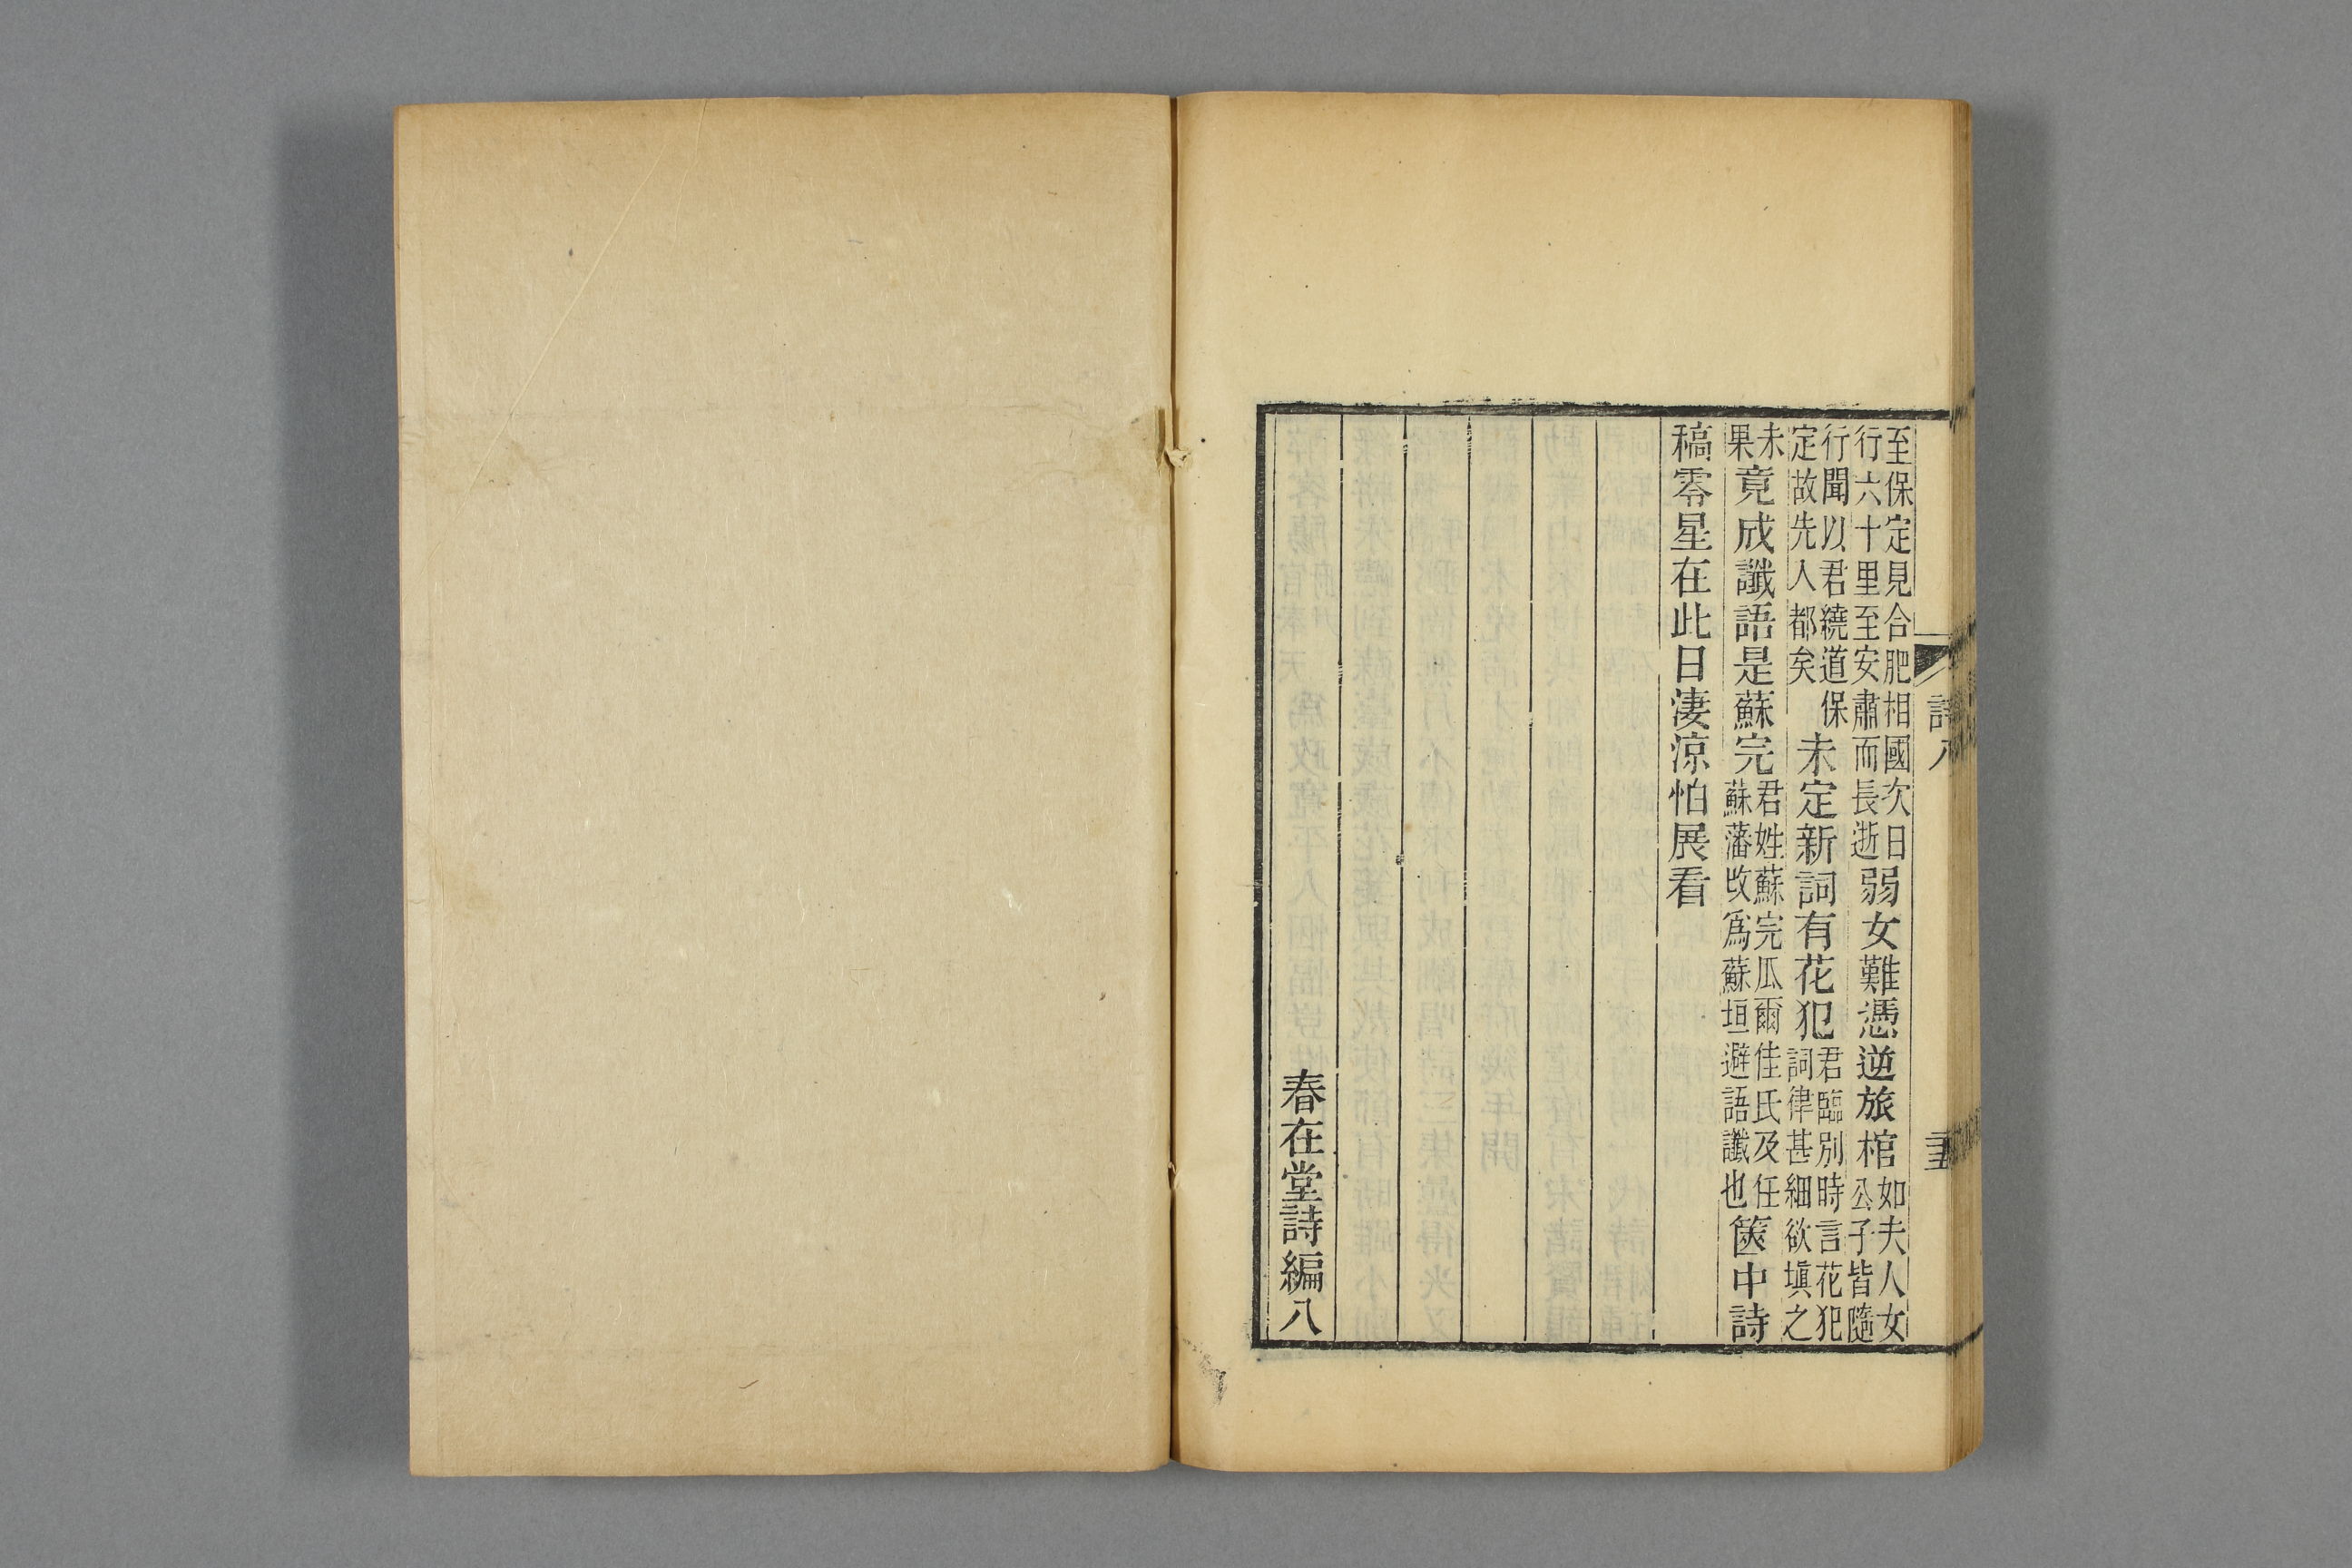 至保定見合肥相國次日
行六十里至安肅而長逝
弱女難憑逆旅棺
如夫人女
公子皆隨
行聞以君繞道保
定故先人都矣
未定新詞有花犯
君臨別時言花犯
詞律甚細欲塡之
未
果
竟成讖語是蘇完
君姓蘇完瓜爾佳氏及任
蘇藩改爲蘇垣避語讖也
篋中詩
稿零星在此日淒涼怕展看
春在堂詩編八
詩八